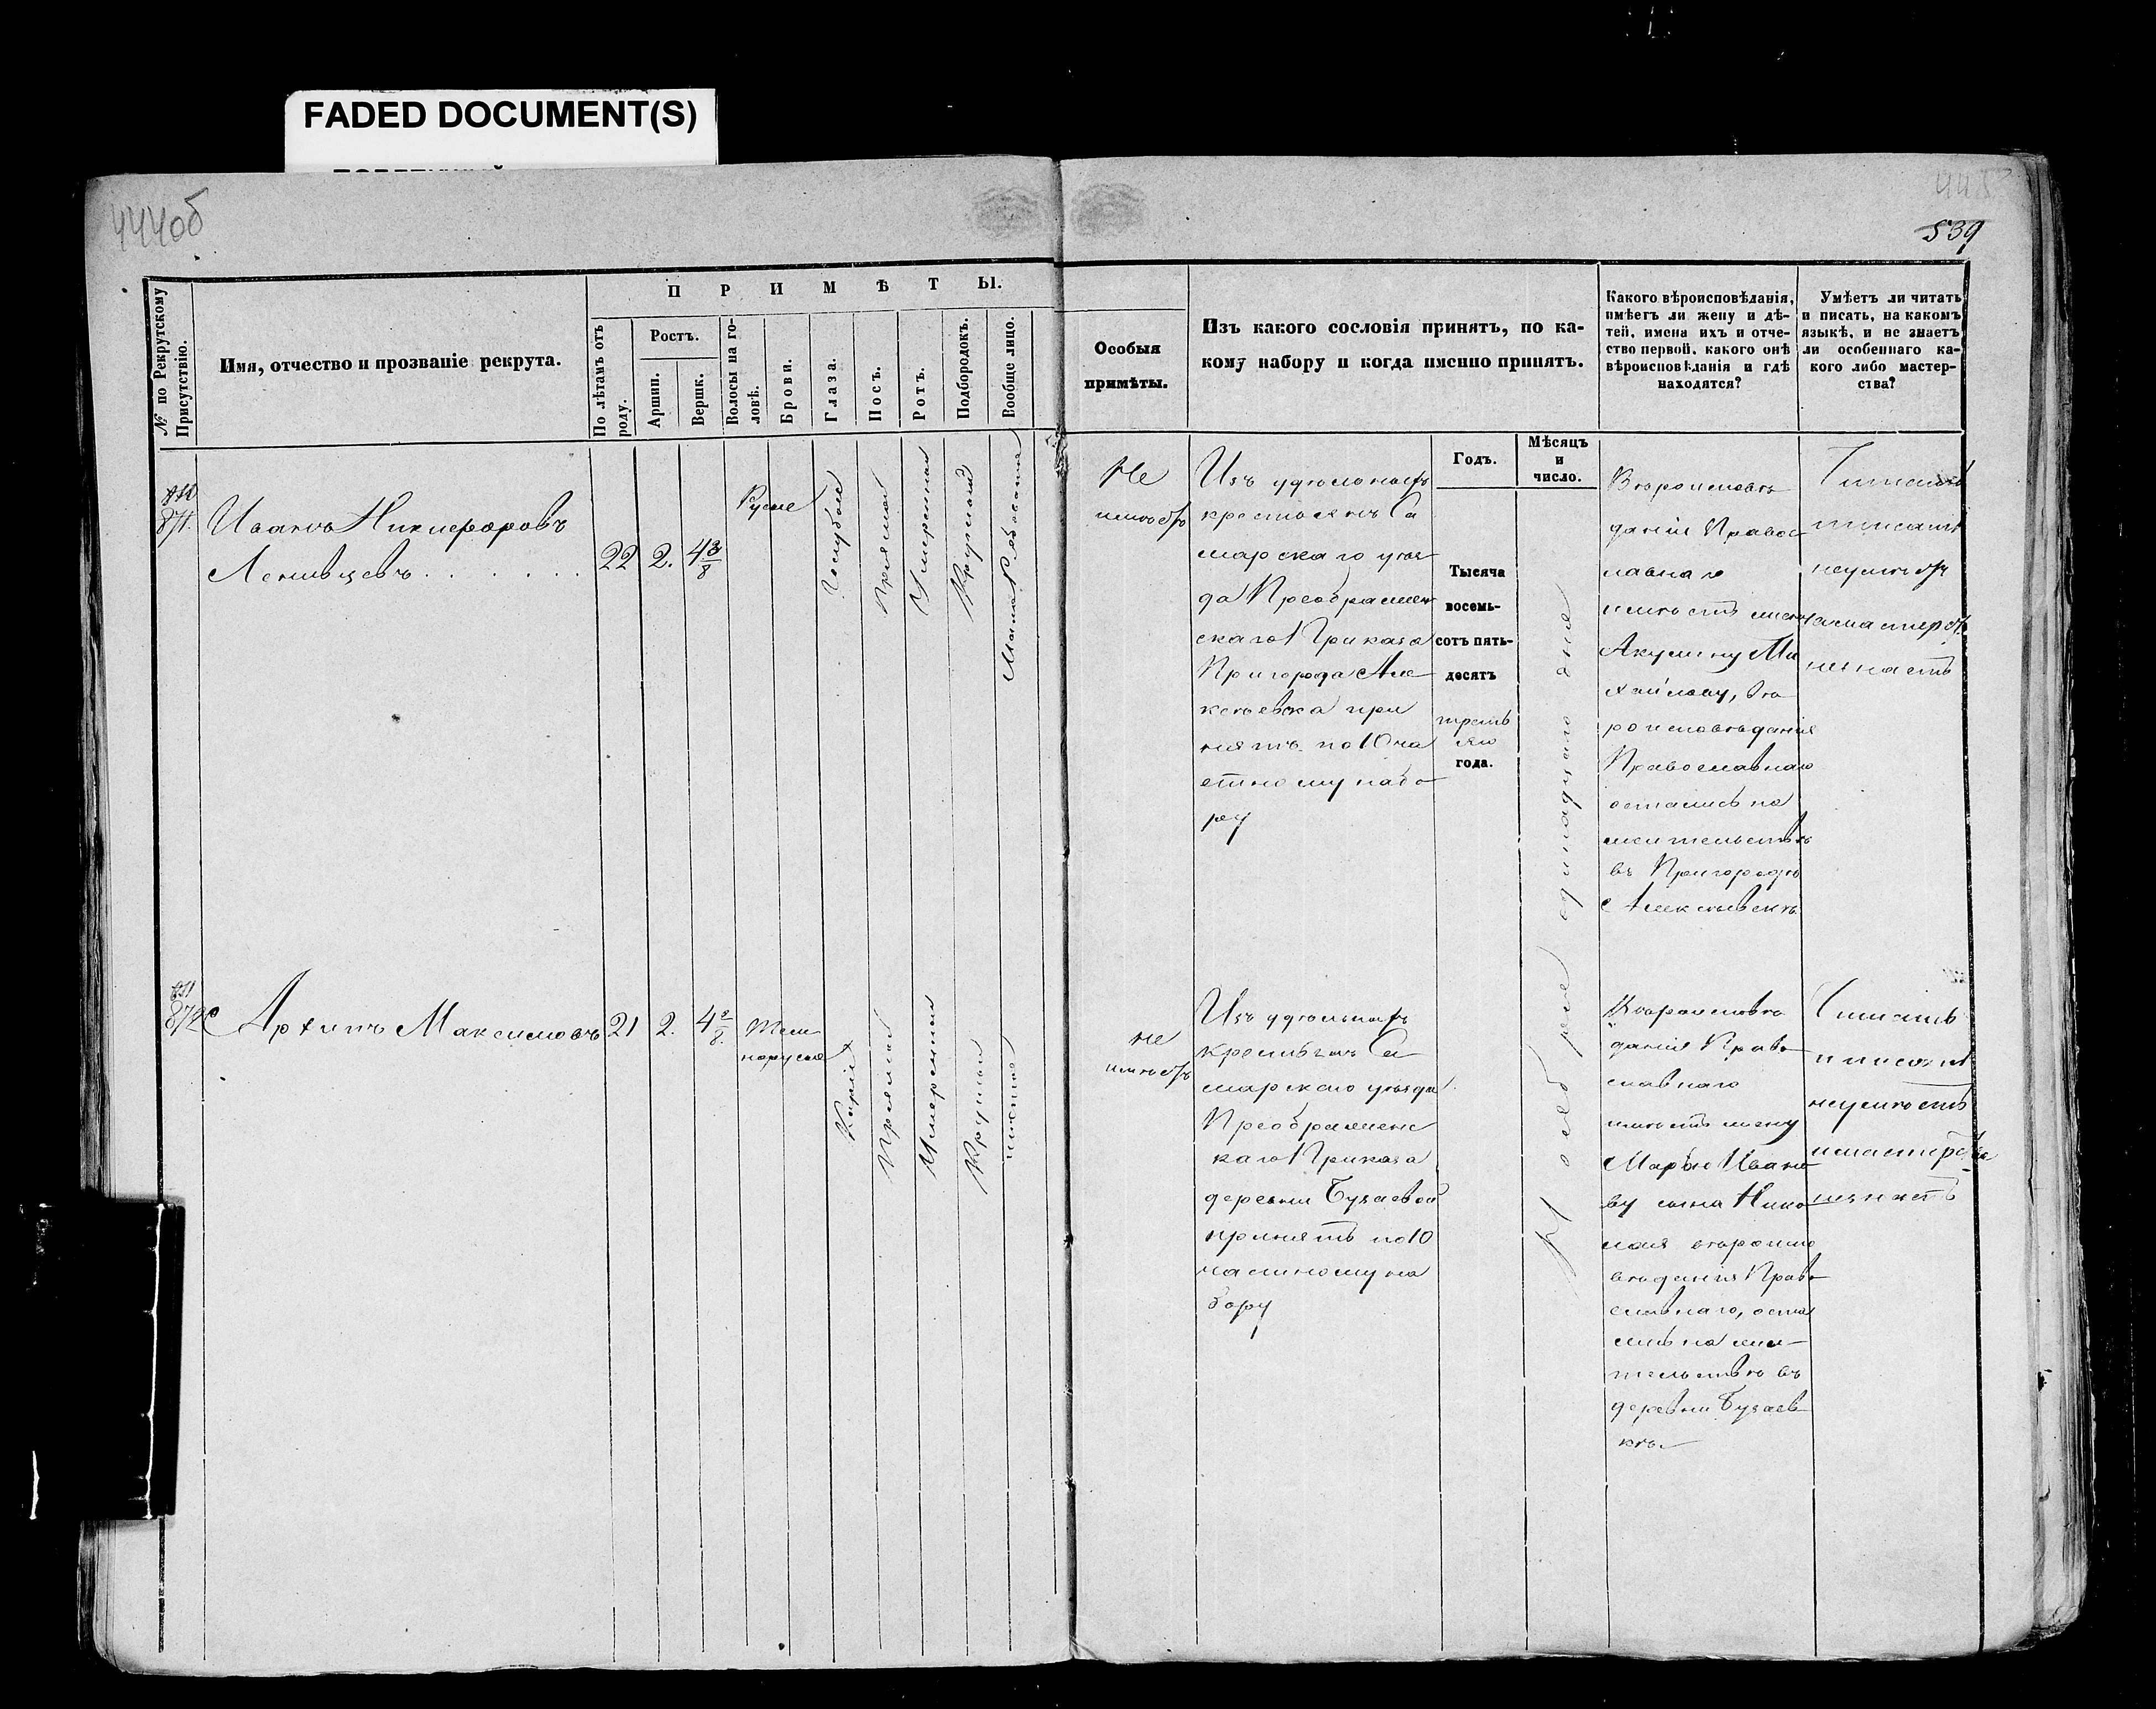 FADED DOCUMENT(S)
444об
539
№ по Рекрутскому Присутствію.
Имя, отчество и прозваніе рекрута.
ПРИМѢТЫ.
По лѣтамъ отъ роду.
Ростъ.
Аршин.
Вершк.
Волосы на го-
ловѣ.
Брови.
Глаза.
Носъ.
Ротъ.
Подбородокъ.
Вообще лицо.
Особыя
примѣты.
Изъ какого сословія принятъ, по ка-
кому набору и когда именно принятъ.
Какого вѣроисповѣданія,
имѣетъ ли жену и дѣ-
тей, имена ихъ и отче-
ство первой, какого онѣ
вѣроисповѣданія и гдѣ
находятся?
Умѣетъ ли читать
и писать, на какомъ
языкѣ, и не знаетъ
ли особеннаго ка-
кого либо мастер-
ства?
Годъ.
Мѣсяцъ
и
число.
871.
Иванъ Никифоровъ
22
2.
4 3/8
Русые
Голубые
Прямой
Умѣренный
Круглый
Не
имѣетъ
Изъ удѣльныхъ
крестьянъ Са
марскаго уѣз
да Преображен
скаго Приказа
Пригорода Але
ксѣевска при
нятъ по 10 ча
стному набо
ру
Тысяча
восемь-
сотъ пять-
десятъ
треть
яго
года.
Ноября одинадцатаго дня
Вѣроисповѣ
данія Правос
лавнаго
имѣетъ жену
Акулину Ми
хайлову, вѣ
роисповѣданія
Православнаго
остались на
жительствѣ
въ Пригородѣ
Алексѣевскѣ.
Читать
писать
неумѣетъ
мастерст.
незнаетъ
872
Архипъ Максимовъ
21
2.
4
8.
Тем
норусые
Каріе
Прямой
Умѣренный
Круглый
чистое
не
имѣетъ
Изъ удѣльныхъ
крестьянъ Са
марскаго уѣзда
Преображенс
каго Приказа
деревни Бузаевой
принятъ по 10
частному на
бору
Вѣроисповѣ
данія Право
славнаго
имѣетъ жену
Марью Ивано
ву сына Нико
лая вѣроиспо
вѣданія Право
славнаго, оста
лись на жи
тельствѣ въ
деревни Бузаев
кѣ.
Читать
и писать
неумѣетъ
и мастерства
незнаетъ